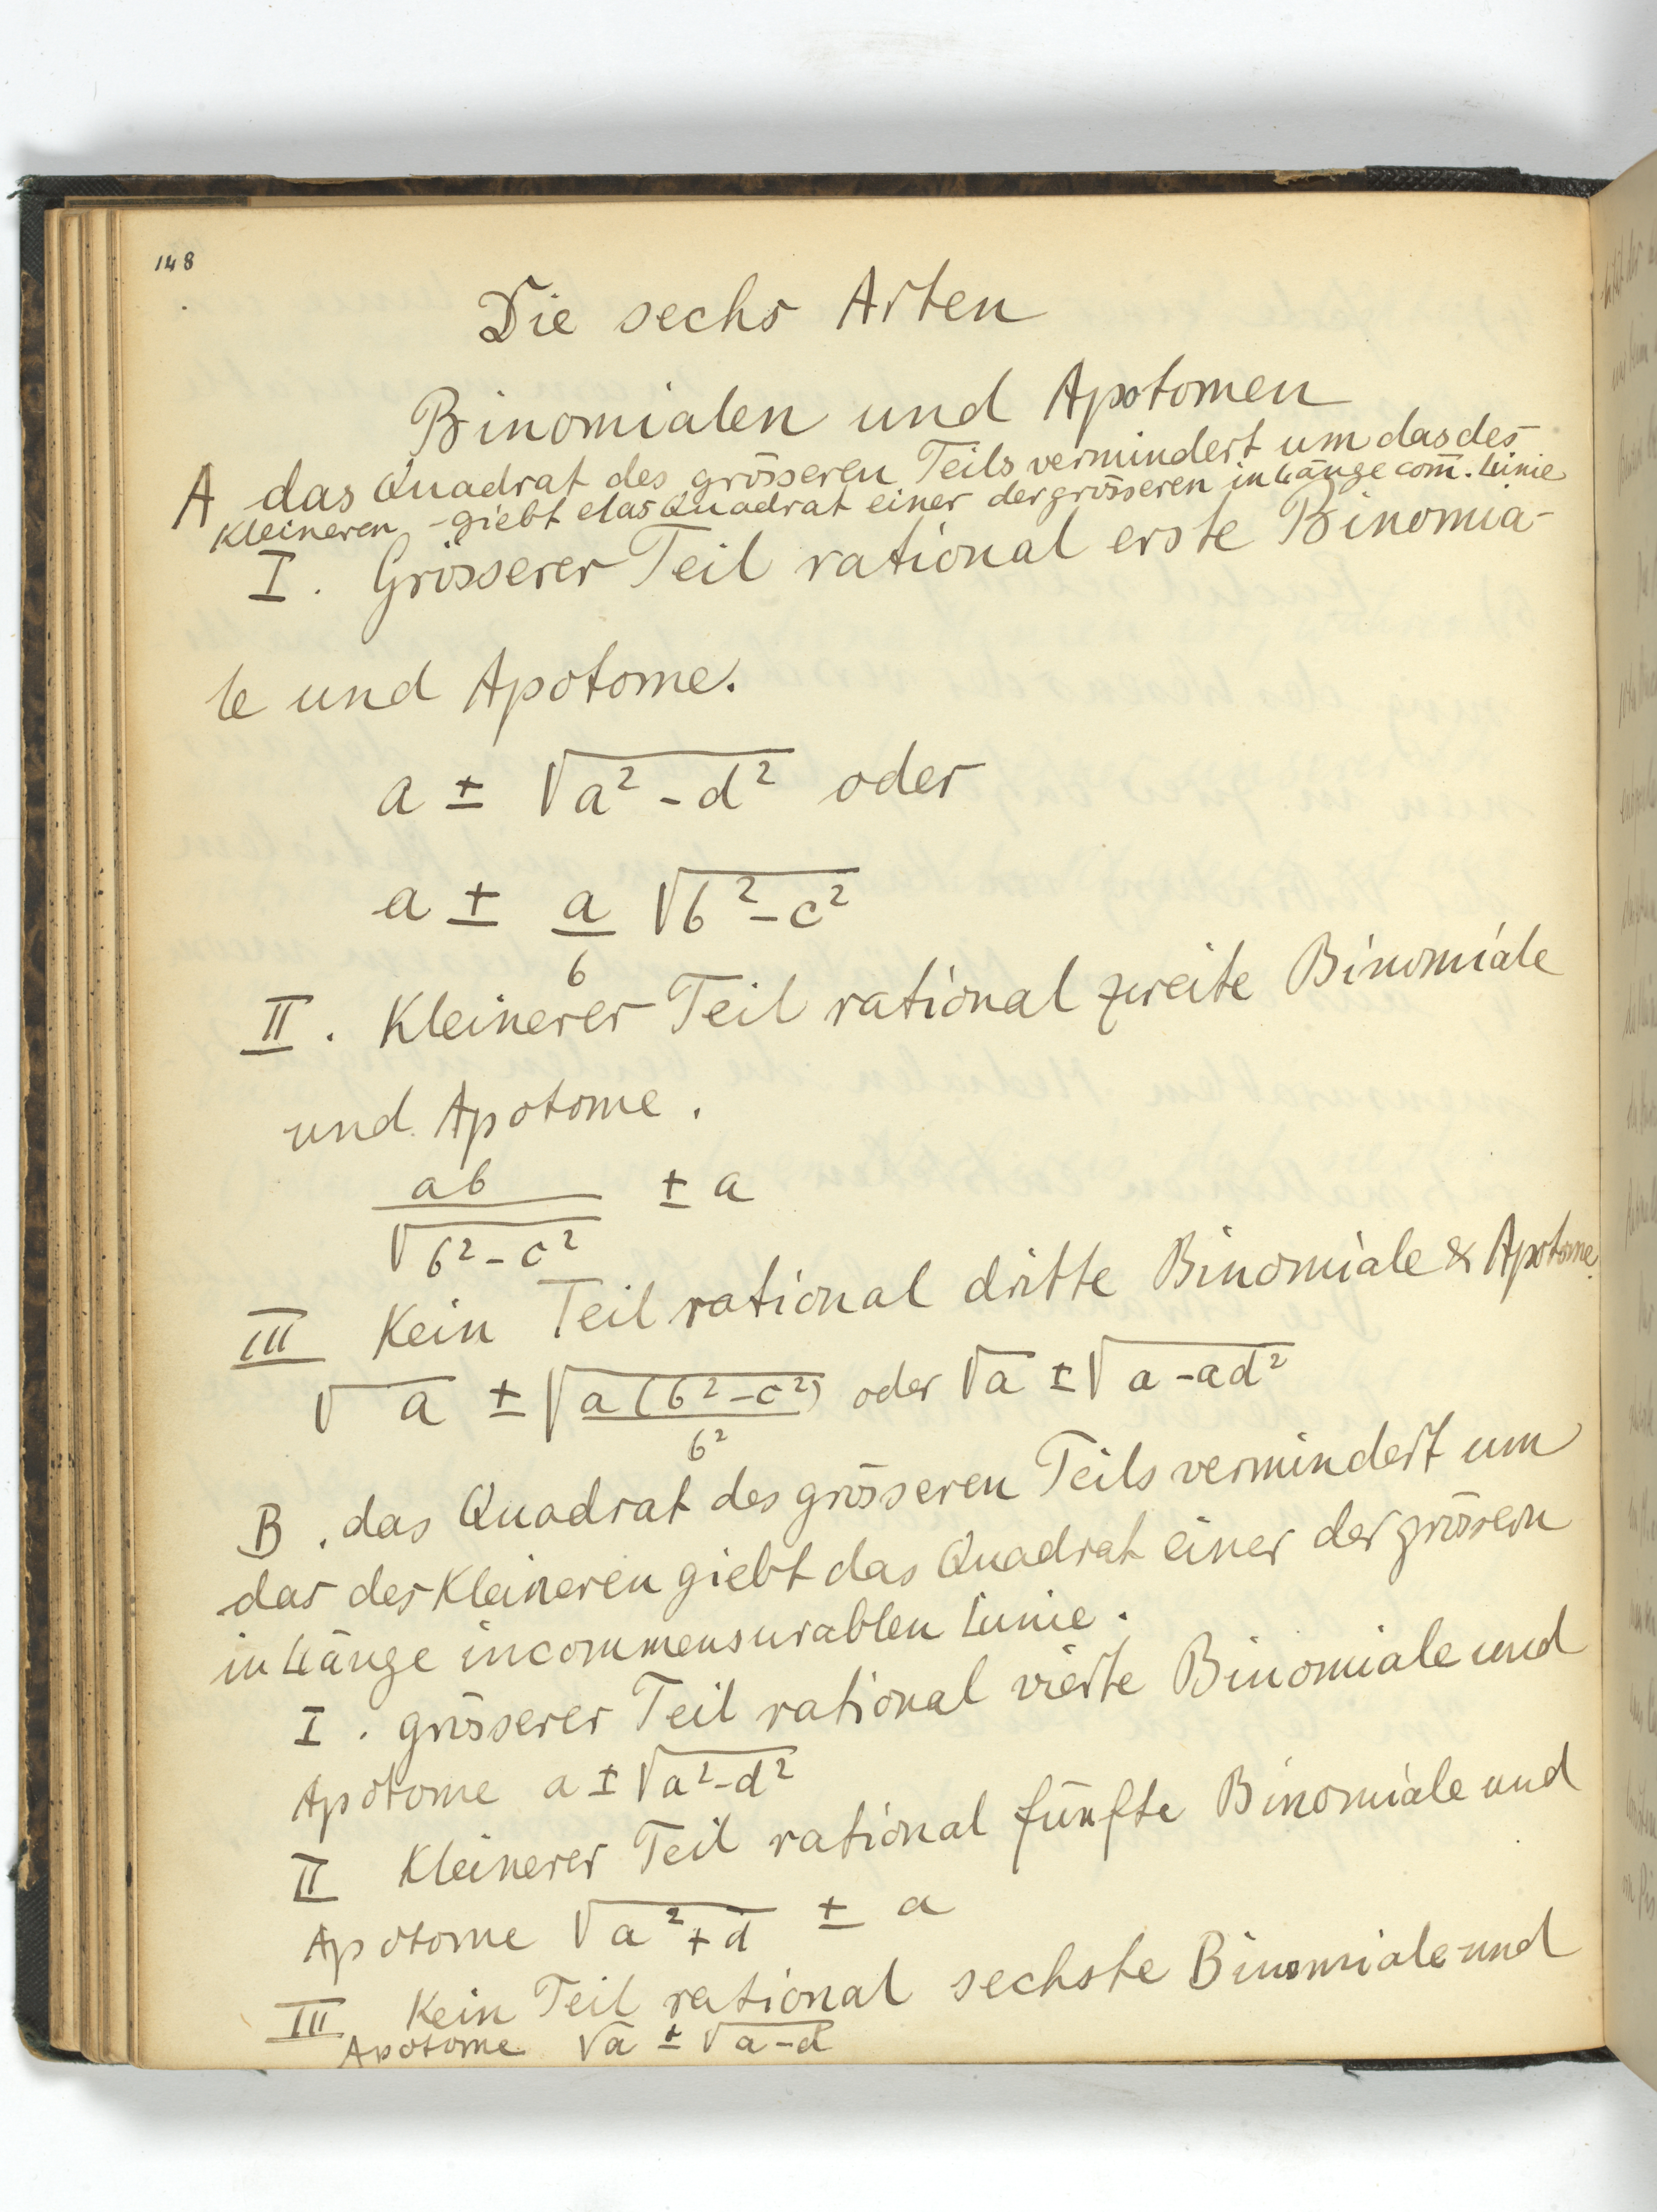 148
Die sechs Arten
Binomialen und Apotomen
A das Quadrat des grösseren Teils vermindert um das des
Kleineren - giebt das Quadrat einer der grösseren in Länge com̄. Linie
I. Grösserer Teil rational erste Binomia-
le und Apotome.
a ± √(a² - d²) oder
a ± a/b √(b² - c²)
II. Kleinerer Teil rational zweite Binomiale
und Apotome.
ab/√(b² - c²) ± a
III Kein Teil rational dritte Binomiale & Apotome.
√a ± √(a(b² - c²)/b²) oder √a ± √(a - ad²)
B. das Quadrat des grösseren Teils vermindert um
das des Kleineren giebt das Quadrat einer der grösern
in Länge incommensurablen Linie.
I. grösserer Teil rational vierte Binomiale und
Apotome a ± √(a² - d²)
II Kleinerer Teil rational fünfte Binomiale und
Apotome √(a² + d) ± a
III Kein Teil rational sechste Binomiale und
Apotome √a ± √(a - d)